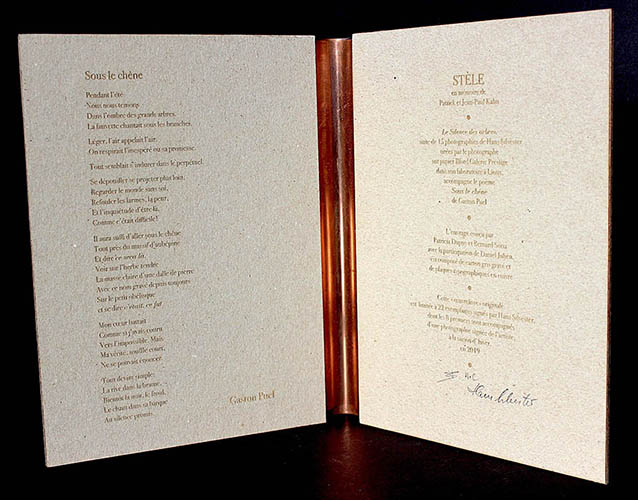 Sous le chêne
Pendant l'été
Nous nous tenions
Dans l'ombre des grands arbres.
La fauvette chantait sous les branches.
Léger, l'air appelait l'air.
On respirait l'inespéré ou sa promesse.
Tout semblait s'indurer dans le perpétuel.
Se dépouiller, se projeter plus loin,
Regarder le monde sans soi,
Refouler les larmes, la peur,
Et l'inquiétude d'être là,
Comme c'était difficile!
Il aura suffi d'aller sous le chêne
Tout près du massif d'aubépine
Et dire ce sera là,
Voir sur l'herbe tendre
La masse claire d'une dalle de pierre
Avec ce nom gravé depuis toujours
Sur le petit obélisque
et se dire c'était, ce fut.
Mon cœur battait
Comme si j'avais couru
Vers l'impossible. Mais
Ma vérité, souffle court,
Ne se pouvait énoncer.
Tout devint simple:
La rive dans la brume,
Bientôt la nuit, le froid,
Le chant dans sa barque
Au silence promis.
Gaston Puel
STÈLE
en mémoire de
Patrick et Jean-Paul Kahn
Le Silence des arbres,
suite de 15 photographies de Hans Silvester
tirées par le photographe
sur papier Ilford Galerie Prestige
dans son laboratoire à Lioux,
accompagne le poème
Sous le chêne
de Gaston Puel
L'ouvrage conçu par
Patricia Dupuy et Bernard Soria
avec la participation de Daniel Juhen,
est composé de carton gris gravé et
de plaques d'oxygraphiques en cuivre
Cette œuvre originale
est limitée à 22 exemplaires signés par Hans Silvester,
dont les 8 premiers sont accompagnés
d'une photographie signée de l'artiste,
à la saison d'hiver,
en 2019
Hans Silvester